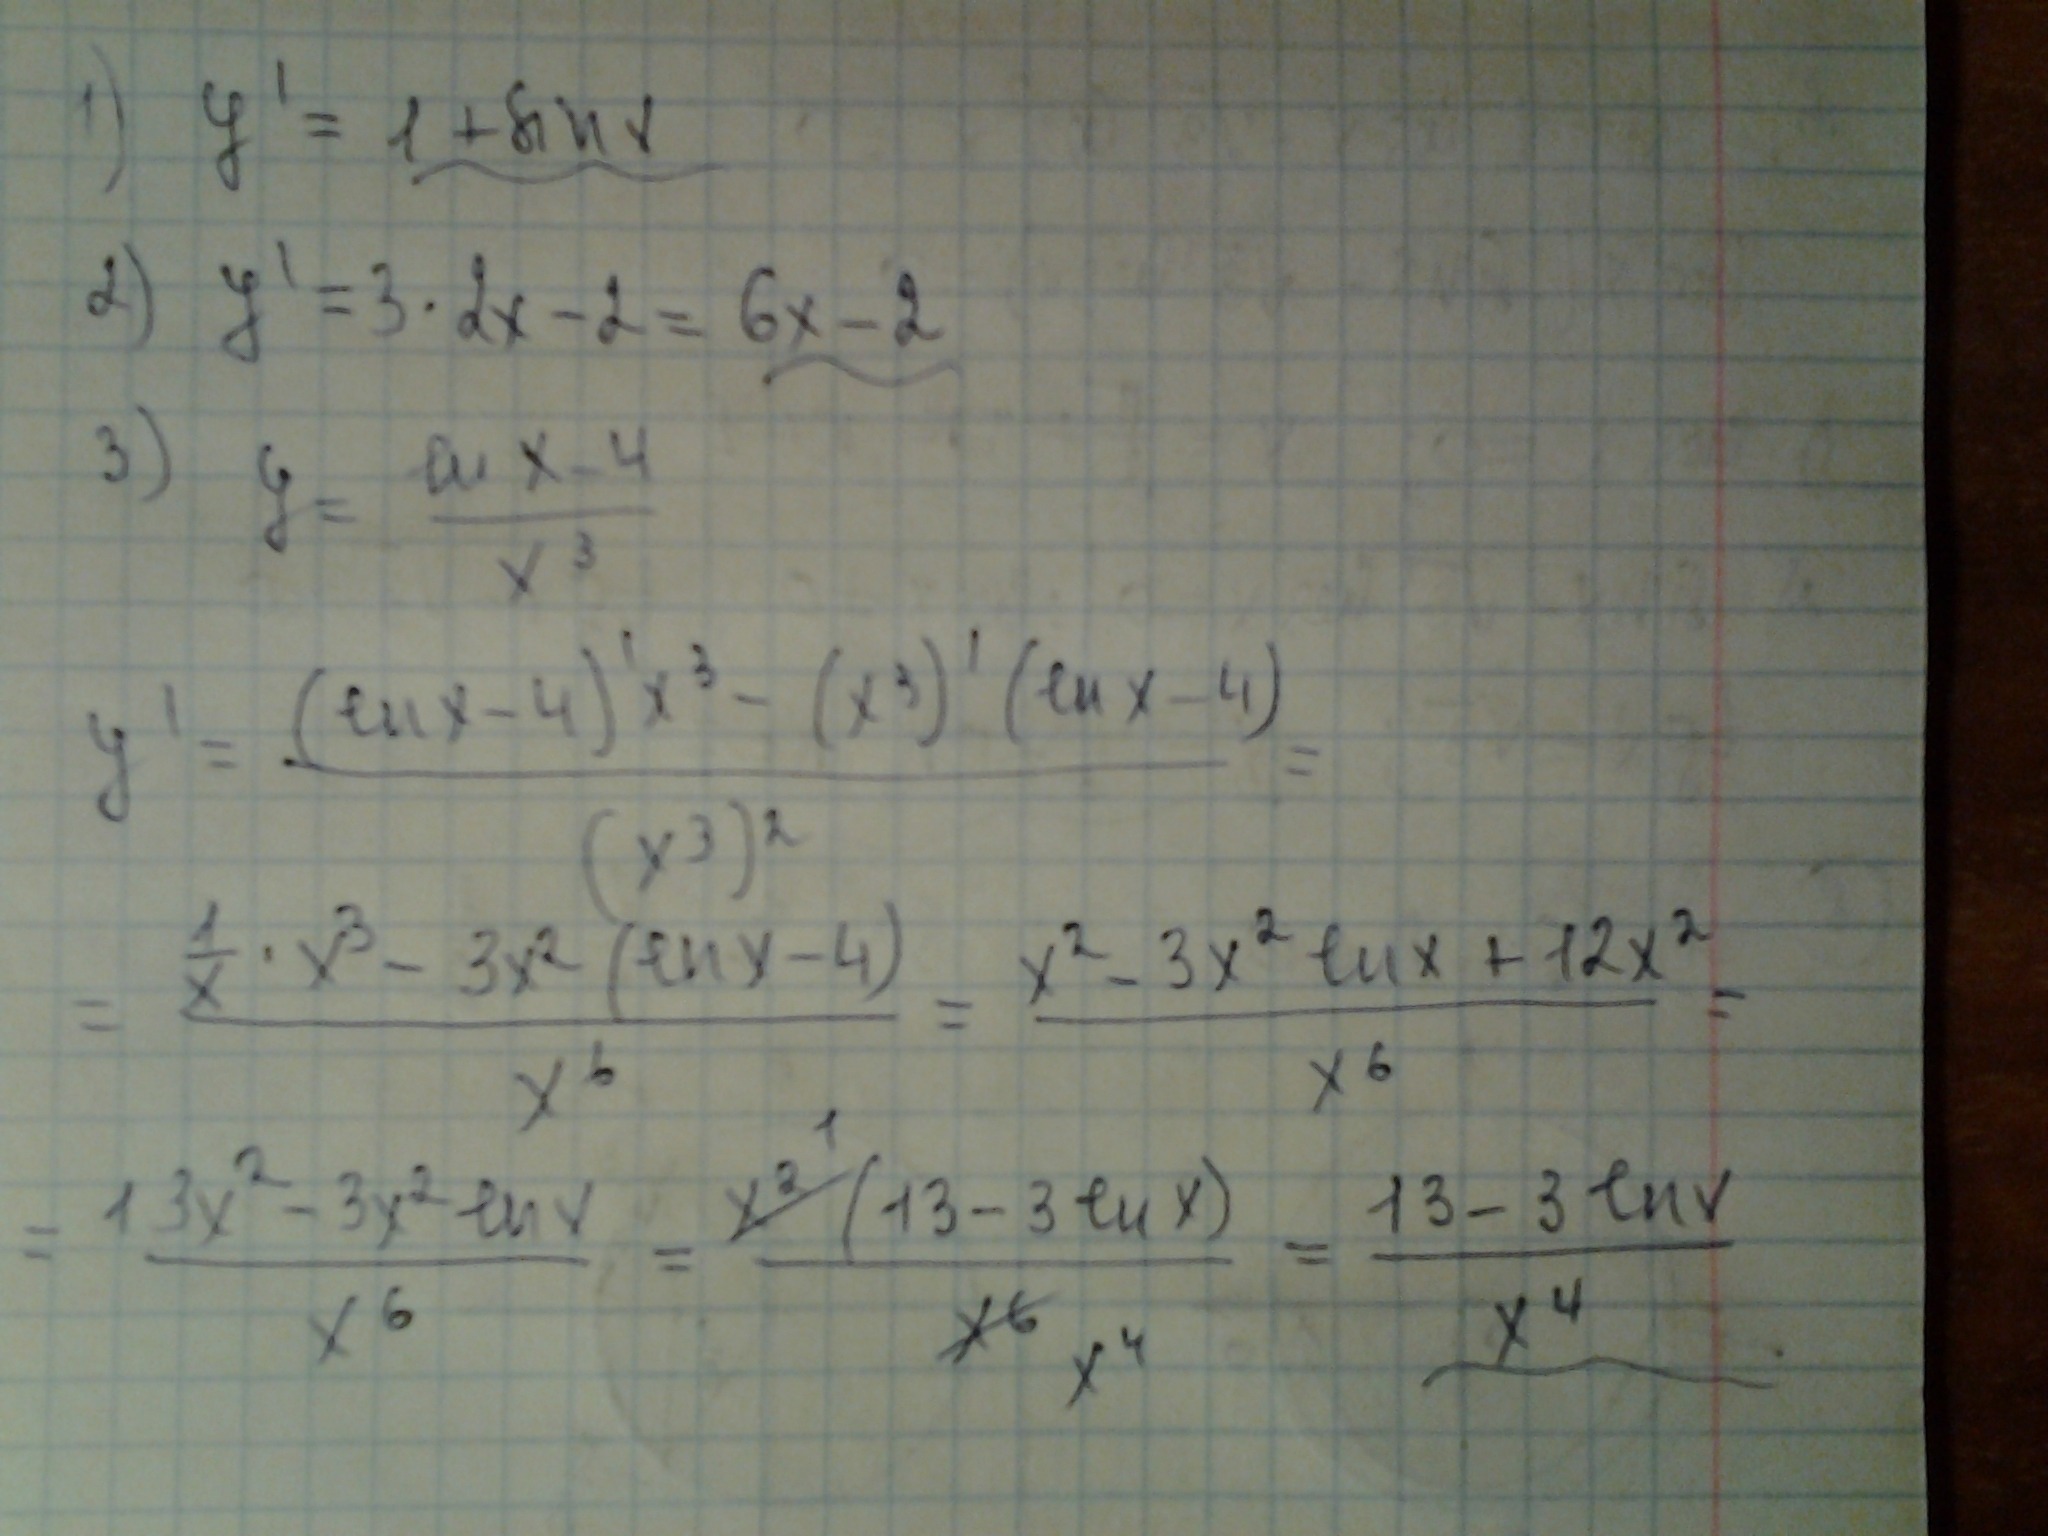 1) y' = 1 + sin x
2) y' = 3 · 2x - 2 = 6x - 2
3) y = (ln x - 4) / x^3
y' = ((ln x - 4)' x^3 - (x^3)' (ln x - 4)) / (x^3)^2 =
= (1/x · x^3 - 3x^2 (ln x - 4)) / x^6 = (x^2 - 3x^2 ln x + 12x^2) / x^6 =
= (13x^2 - 3x^2 ln x) / x^6 = (x^2 1 (13 - 3 ln x)) / (x^6 x^4) = (13 - 3 ln x) / x^4